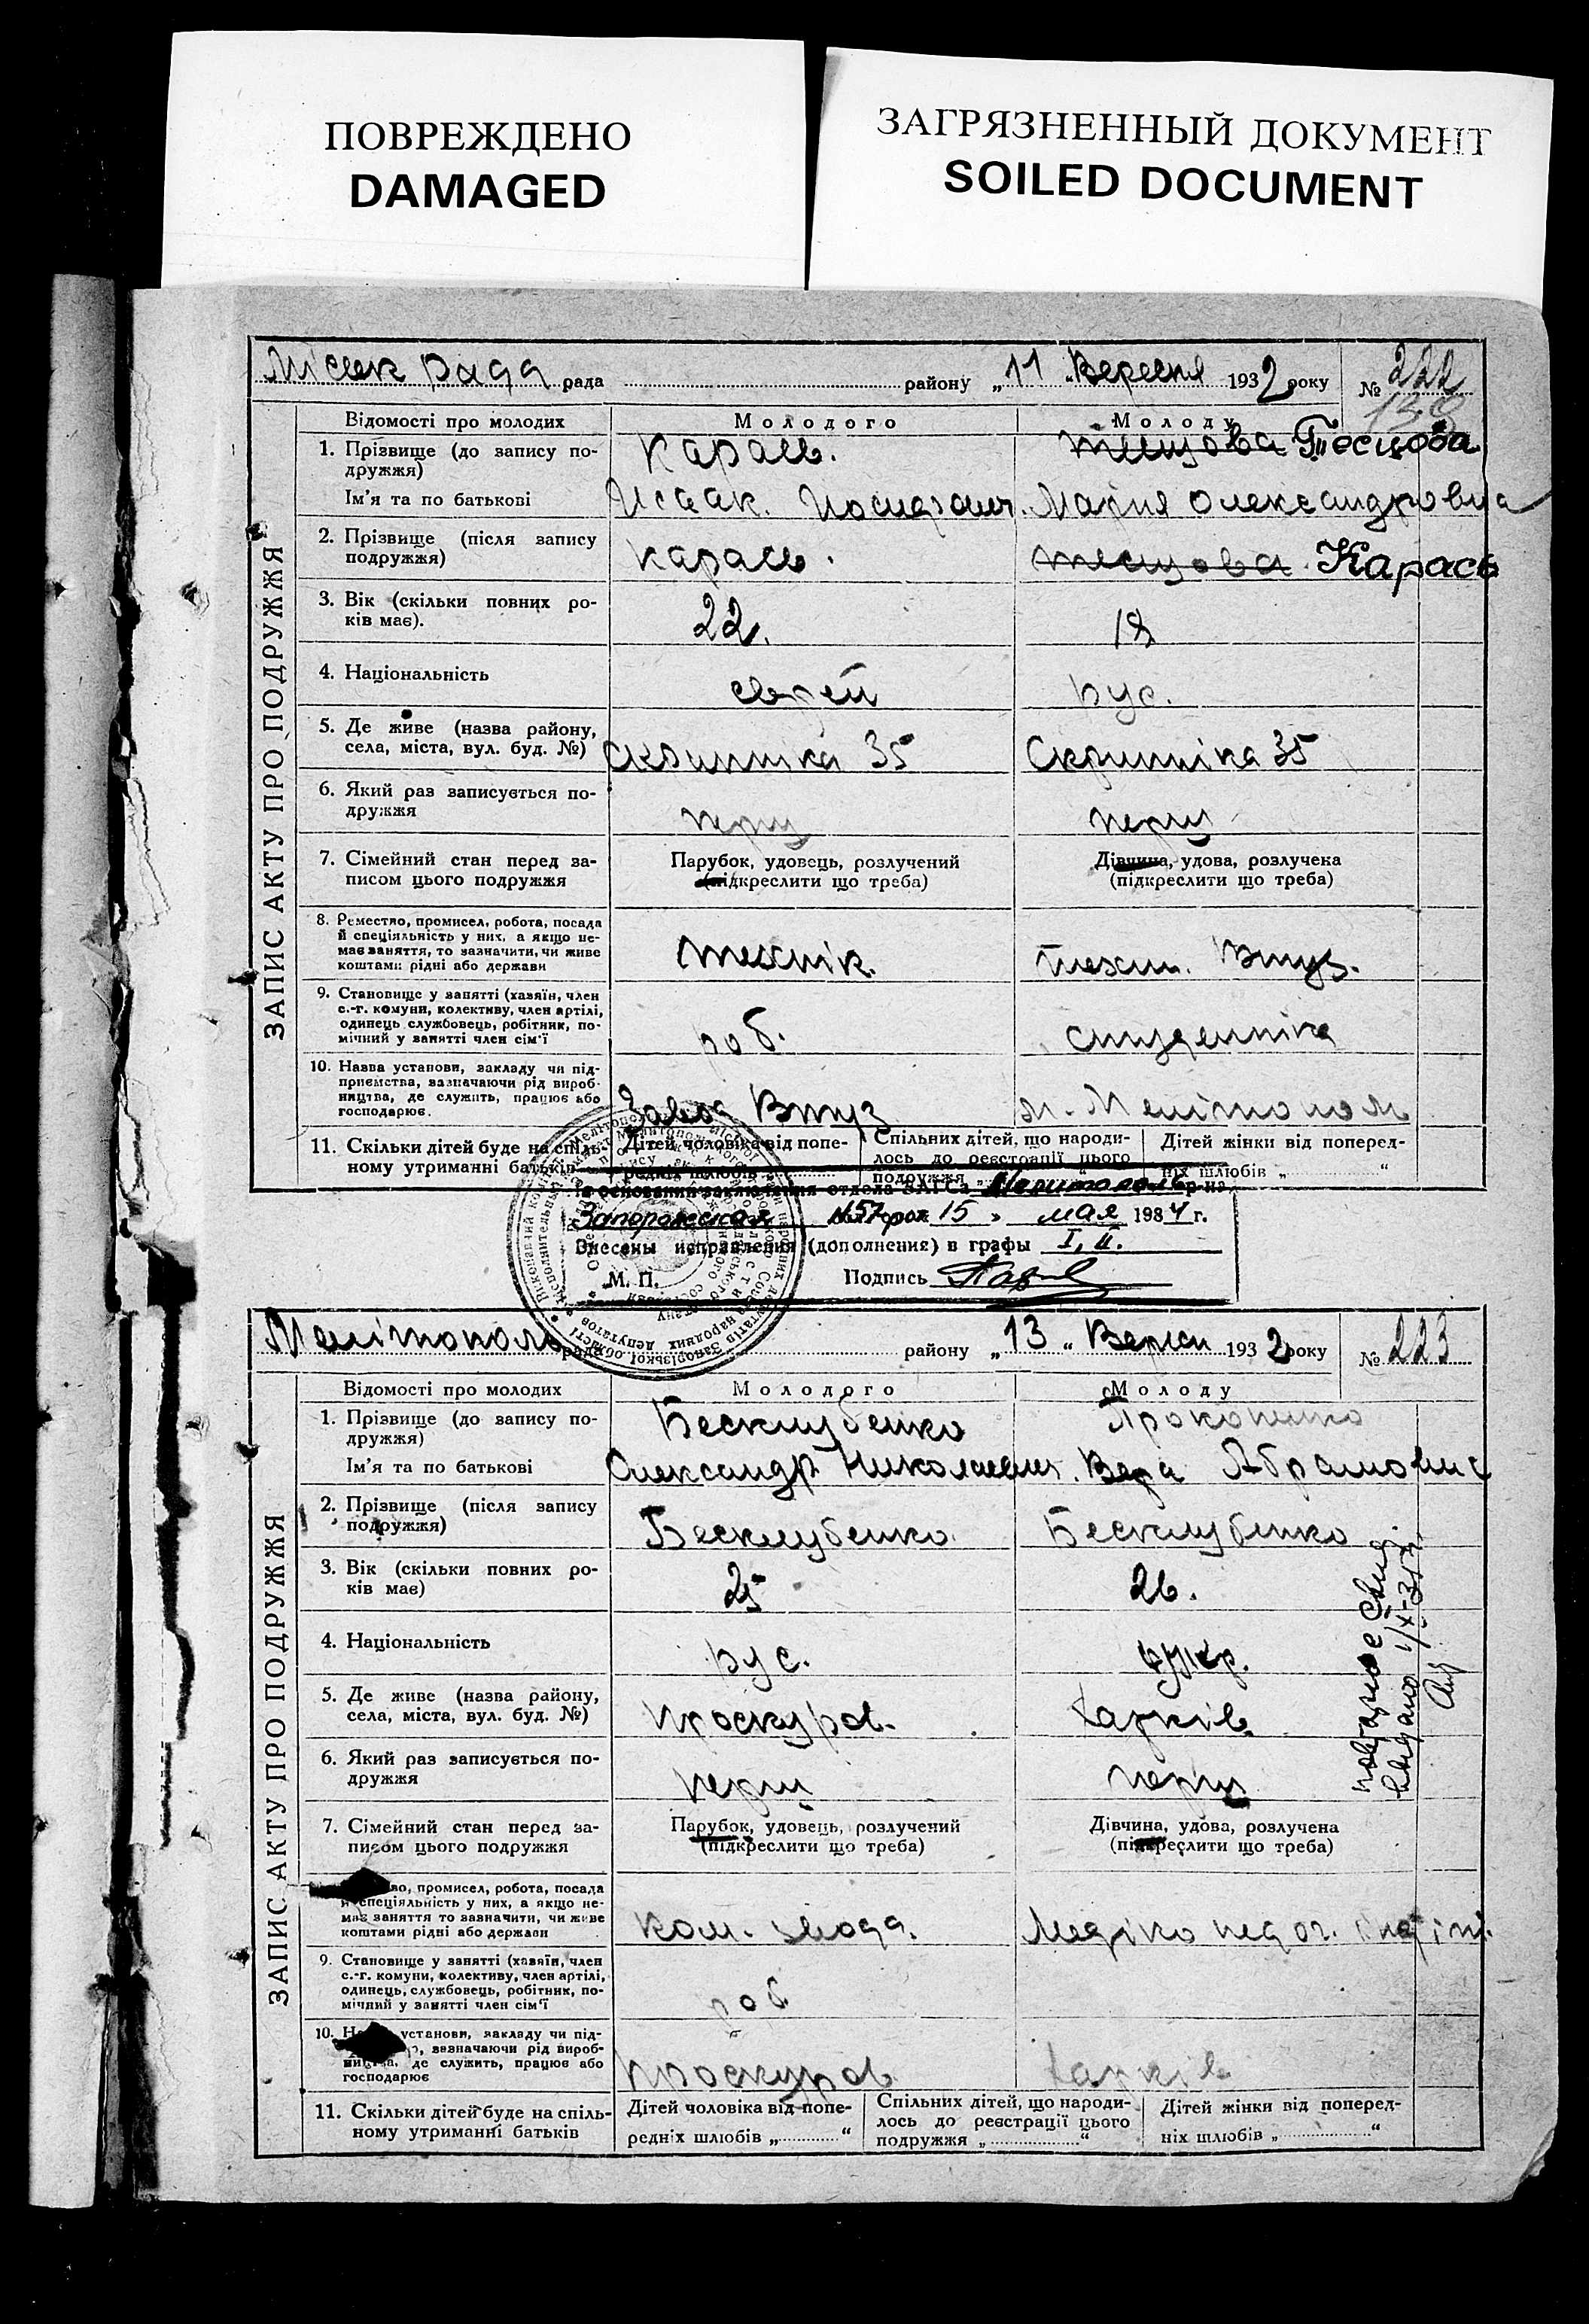 ПОВРЕЖДЕНО
DAMAGED
ЗАГРЯЗНЕННЫЙ ДОКУМЕНТ
SOILED DOCUMENT
ЗАПИС АКТУ ПРО ПОДРУЖЖЯ
Міськ рада рада району „11 Вересня 1932 року № 222
138
Відомості про молодих Молодого Молоду
1. Прізвище (до запису по-
дружжя) Карась. Тесцова
Ім'я та по батькові Исаак. Мария Олександровна
2. Прізвище (після запису
подружжя) Карась. Карась
3. Вік (скільки повних ро-
ків має). 22. 18
4. Національність еврей рус.
5. Де живе (назва району,
села, міста, вул. буд. №) Скрипніка 35 Скрипніка 35
6. Який раз записується по-
дружжя перш перш
7. Сімейний стан перед за-
писом цього подружжя
Парубок, удовець, розлучений
(підкреслити що треба)
Дівчина, удова, розлучека
(підкреслити що треба)
8. Ремество, промисел, робота, посада
й спеціяльність у них, а якщо не-
має заняття, то зазначити, чи живе
коштами рідні або держави
технік. Втуз.
9. Становище у занятті (хазяїн, член
с.-г. комуни, колективу, член артілі,
одинець службовець, робітник, по-
мічний у занятті член сім'ї
роб. студентка
10. Назва установи, закладу чи під-
приємства, зазначаючи рід вироб-
ництва, де служить, працює або
господарює.
Завод Втуз м. Мелітополь
11. Скільки дітей буде на спіль-
ному утриманні батьків
Дітей чоловіка від попе-
редніх шлюбів
Спільних дітей, що народи-
лось до реєстрації цього
подружжя „ “
Дітей жінки від поперед-
ніх шлюбів „ “
На основании заключения отдела ЗАГСа Мелитополь р-на
Запорожская №57 от 15 » мая 1984 г.
Внесены исправления (дополнения) в графы I, II.
М. П. Подпись
ЗАПИС АКТУ ПРО ПОДРУЖЖЯ
Мелітополь рада району „13 “ 1932 року № 223
Відомості про молодих Молодого Молоду
1. Прізвище (до запису по-
дружжя) Бесклубенко Прокопенко
Ім'я та по батькові Олександр Николаевич. Вера Абрамовна
2. Прізвище (після запису
подружжя) Бесклубенко Бесклубенко
3. Вік (скільки повних ро-
ків має) 25 26.
4. Національність рус. укр.
5. Де живе (назва району,
села, міста, вул. буд. №) Проскуров. Харків
6. Який раз записується по-
дружжя перш перш
7. Сімейний стан перед за-
писом цього подружжя
Парубок, удовець, розлучений
(підкреслити що треба)
Дівчина, удова, розлучена
(підкреслити що треба)
во, промисел, робота, посада
й спеціяльність у них, а якщо не-
має заняття то зазначити, чи живе
коштами рідні або держави
ком. взвода.
9. Становище у занятті (хазяїн, член
с.-г. комуни, колективу, член артілі,
одинець, службовець, робітник, по-
мічний у занятті член сім'ї
роб.
10. установи, закладу чи під-
зазначаючи рід вироб-
ництва, де служить, працює або
господарює
Проскуров Харків
11. Скільки дітей буде на спіль-
ному утриманні батьків
Дітей чоловіка від попе-
редніх шлюбів „ “
Спільних дітей, що народи-
лось до реєстрації цього
подружжя „ “
Дітей жінки від поперед-
ніх шлюбів „ “
повторное свид.
выдано